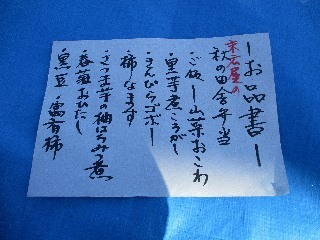 ーお品書ー
末広屋の
秋の田舎弁当
・ご飯ー山菜おこわ
・里芋煮ころがし
・きんぴらゴボー
・柿なます
・さつま芋の柚はちみつ煮
・春菊おひたし
・黒豆・富有柿